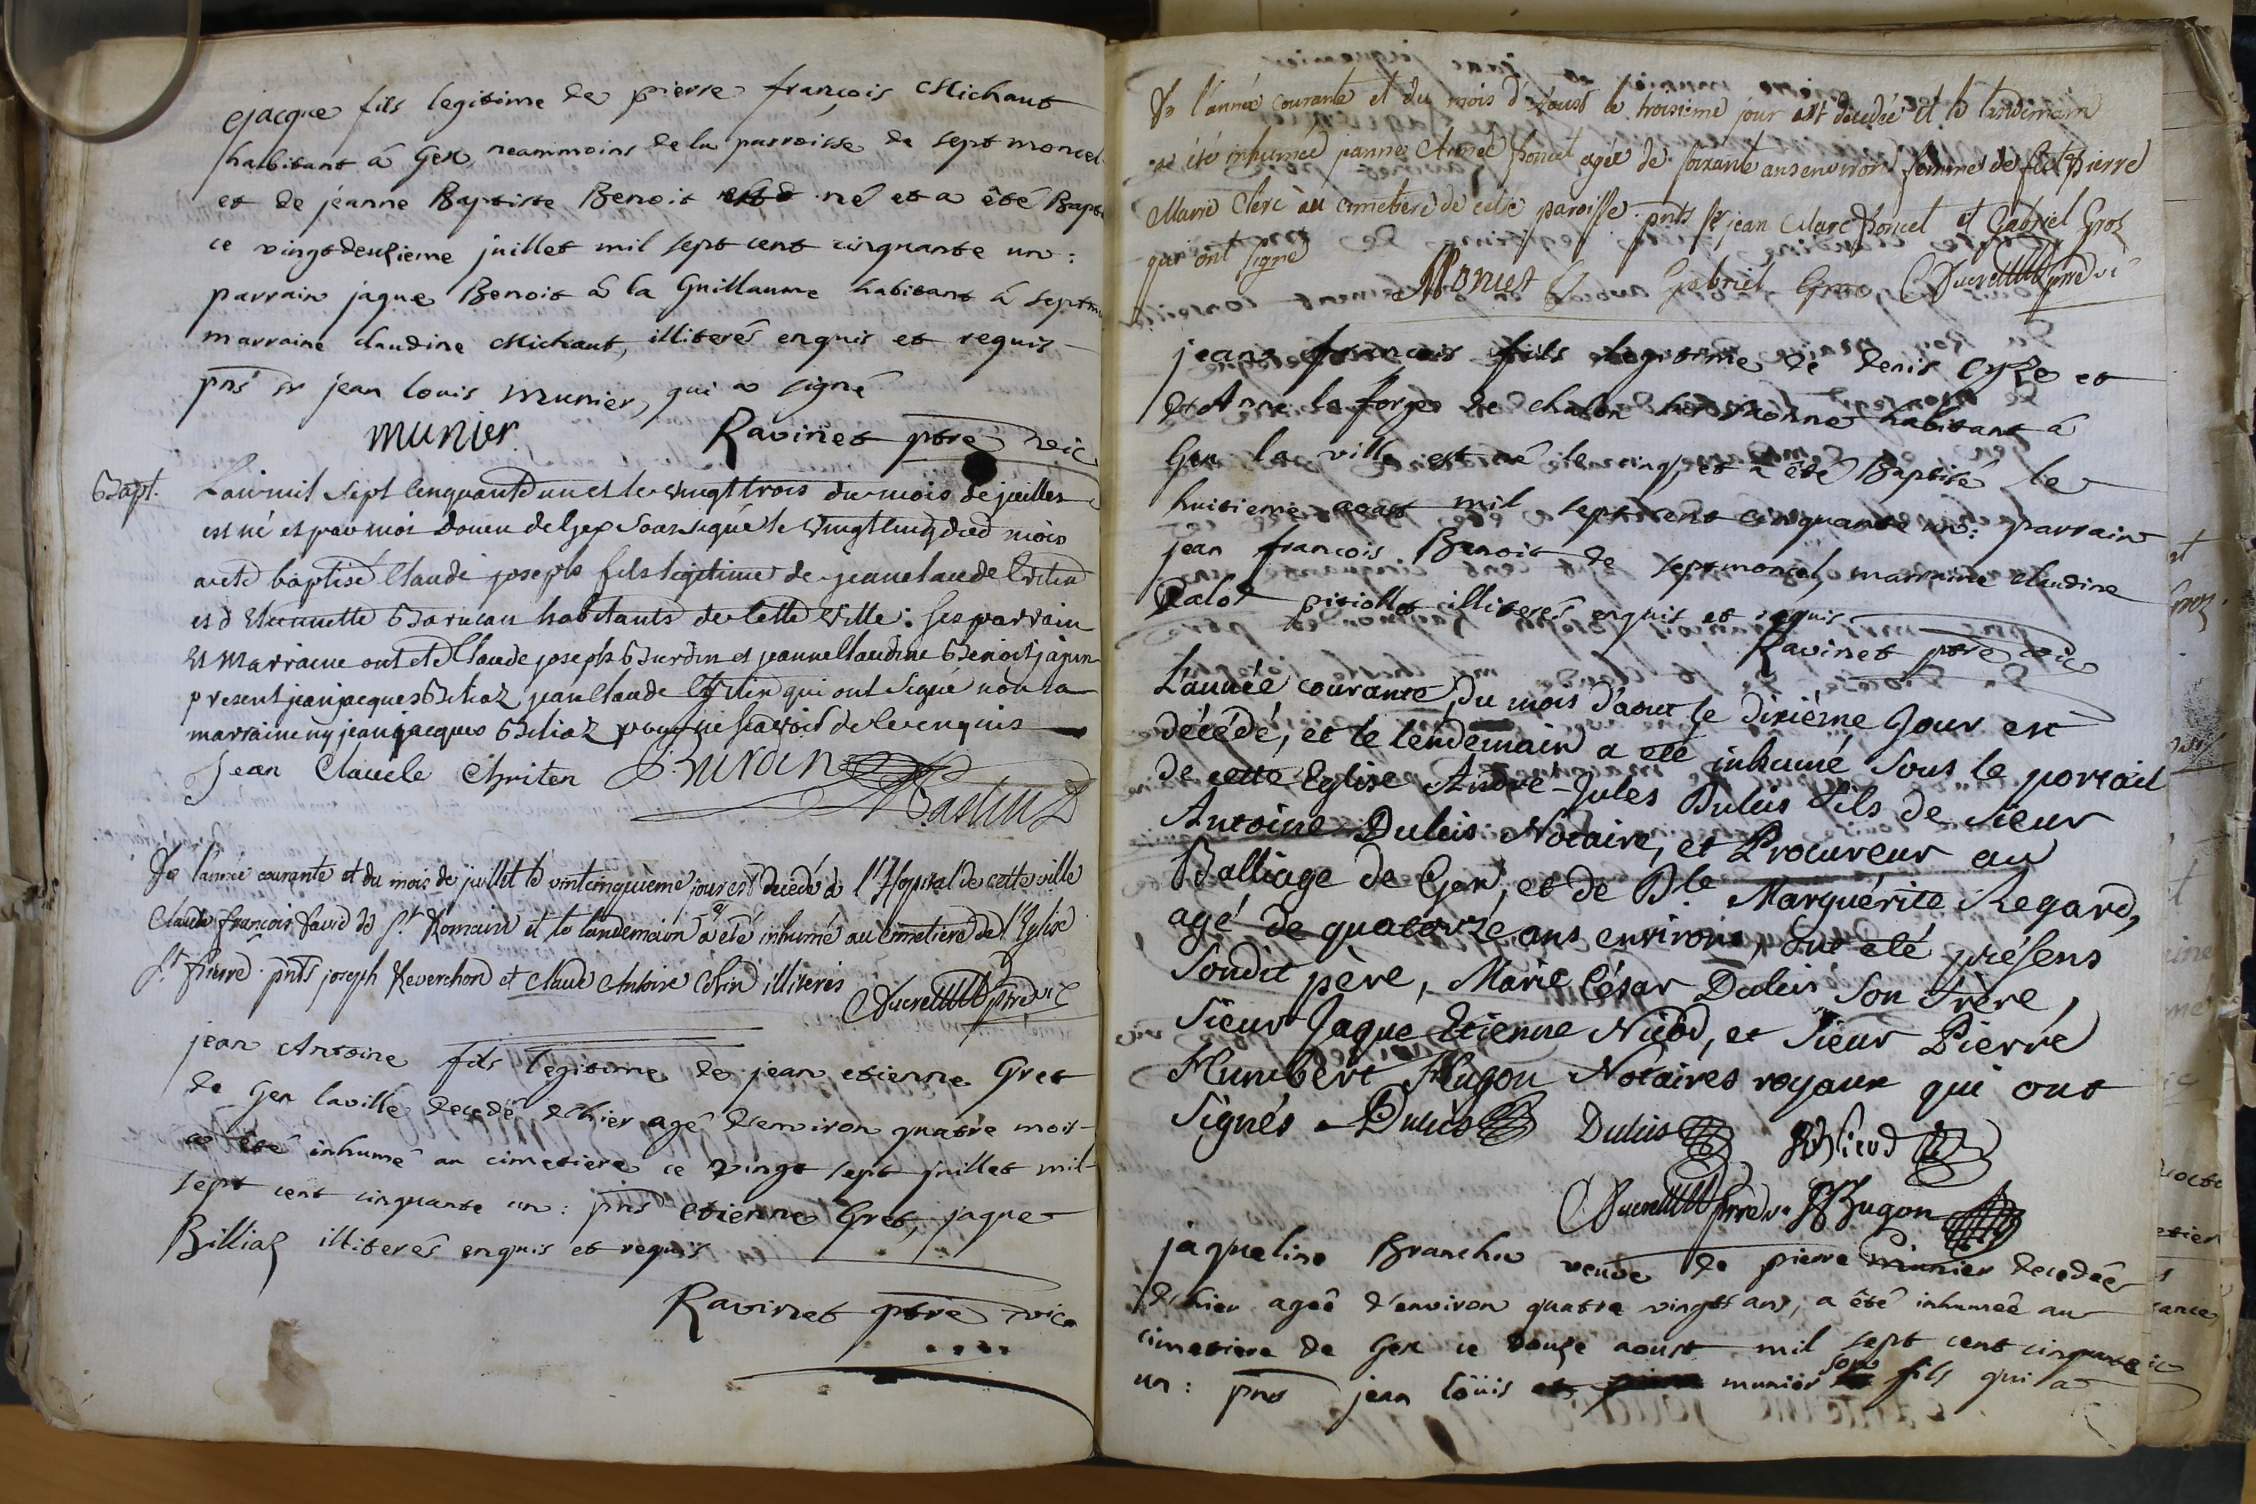 jacque fils legitime de pierre françois Michaut
habitant à Gex neammoins de la parroisse de sept moncel
et de jeanne Baptiste Benoit né et a êté Bapt
ce vingtdeuxieme juillet mil sept cent cinquante un :
parrain jaque Benoit à la Guillaume habitant à septm
marraine claudine Michaut, illiterés enquis et requis
pns sr jean louis munier, qui a signé
munier Ravinet ptre vic
Bapt. L'an mil sept Cinquante un et le vingt trois du mois de juillet
est né et par moi Doyen de Gex soussigné le vingt cinq dud mois
a eté baptisé Claude joseph fils legitime de jean claude Critin
et d'Etiennette Baruean habitants de cette ville : ses parrain
et marraine ont eté Claude joseph Burdin et jeanne Claudine Benoit japin
present jean jacques Biliaz jean Claude Critin qui ont signé non la
marraine ny jean jacques Biliaz pour ne sçavoir de ce enquis
Jean Claude Chriten Burdin
Bastin D
De l'année courante et du mois de juillet le vintcinquieme jour est decedé à l'Hopital de cette ville
Claude françois david de St. Romain et le landemain a eté inhumé au cimetiere de l'Eglise
St. Pierre. pnts joseph Reverchon et Claude Antoine Colin illiterés
Ducret ptre vic
jean Antoine fils legitime de jean etienne Gret
de Gex la ville decedé d'hier agé d'environ quatre mois
a eté inhumé au cimetiere ce vingt sept juillet mil
sept cent cinquante un : pns etienne Gret, jaque
Billiaz illiterés enquis et requis
Ravinet ptre vic
De l'année courante et du mois d'aoust le troisieme jour est decedée et le landemain
a eté inhumée jeanne Aimée Poncet agée de soixante ans environ femme de feu Pierre
Marie Clerc au cimetiere de cette paroisse. pnts Sr jean Marc Poncet et Gabriel Gros
qui ont signé
Poncet Gabriel Gros Ducret ptre vic
jean françois fils legitime de denis et
d'Anne la forge de chalon habitant à
Gex la ville est né le cinq, et a êté Baptisé le
huitieme aoust mil sept cent cinquante un : parrain
jean françois Benoit de septmoncel, marraine claudine
Palot illiterés enquis et requis
Ravinet ptre vic
L'année courante, du mois d'aout le dixième jour est
décédé, et le lendemain a eté inhumé sous le portail
de cette Eglise André-Jules Duluis fils de sieur
Antoine Duluis Notaire, et Procureur au
Balliage de Gex, et de Dle Marguérite Regard,
agé de quatorze ans environ, ont eté présens
Soudit père, Marie César Duluis son frère,
Sieur Jaque Etienne Nicod, et Sieur Pierre
Humbert Hugon Notaires royaux qui ont
signés Duluis Duluis Nicod
Ducret ptre v. Hugon
jaqueline Branche veuve de pierre munier decedée
d'hier ageê d'environ quatre vingts ans, a êté inhumeê au
cimetiere de Gex ce douze aoust mil sept cent cinquante
un : pns jean loüis munier son fils qui a